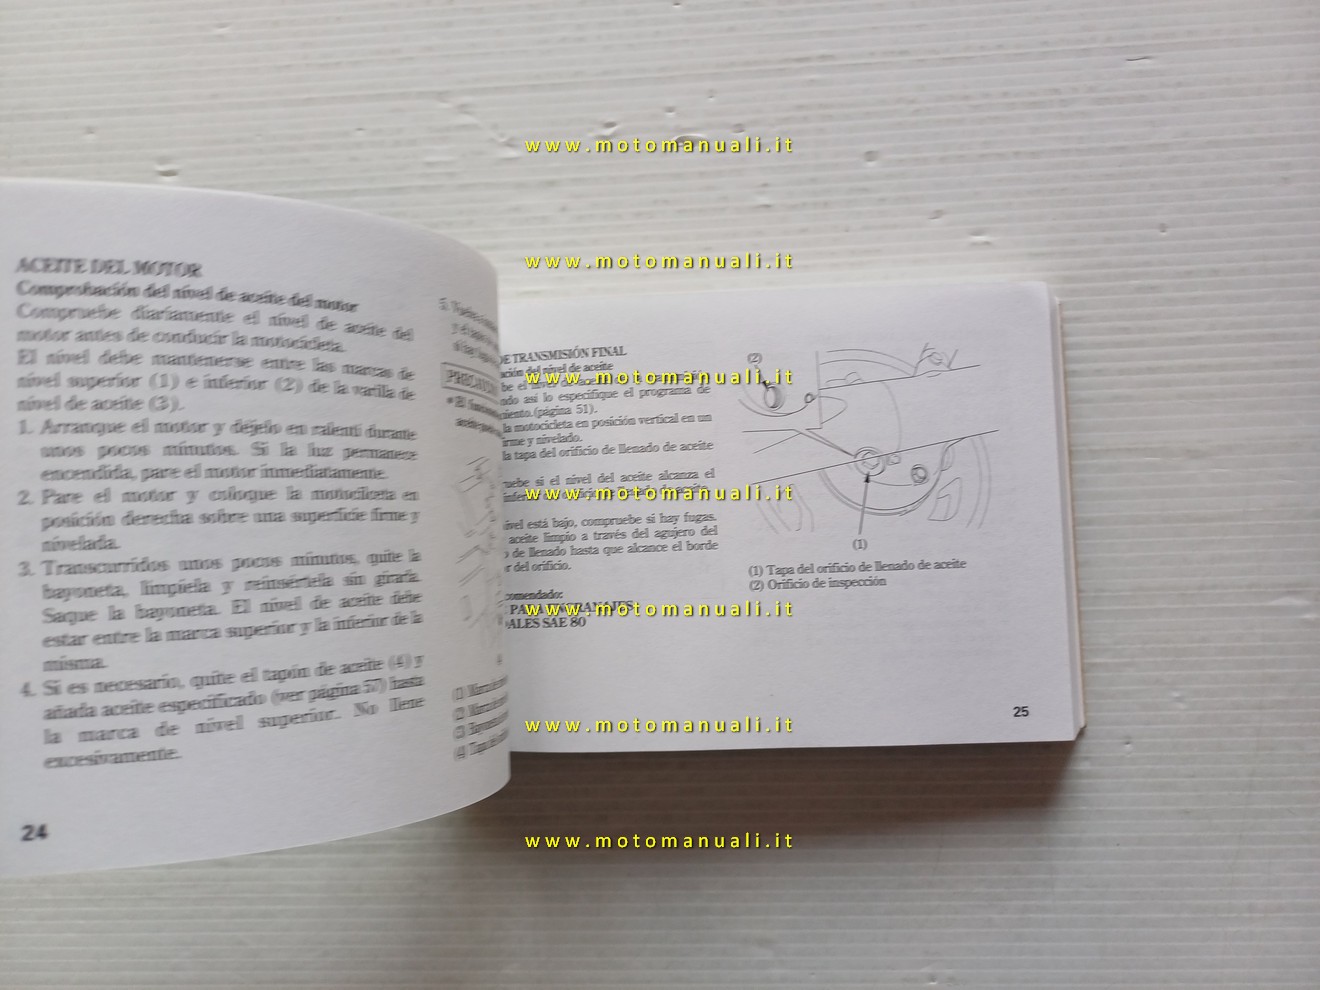 www.motomanuali.it
www.motomanuali.it
www.motomanuali.it
www.motomanuali.it
www.motomanuali.it
www.motomanuali.it
www.motomanuali.it
ACEITE DEL MOTOR
Comprobación del nivel de aceite del motor
Compruebe diariamente el nivel de aceite del
motor antes de conducir la motocicleta.
El nivel debe mantenerse entre las marcas de
nivel superior (1) e inferior (2) de la varilla de
nivel de aceite (3).
1. Arranque el motor y déjelo en ralentí durante
unos pocos minutos. Si la luz permanece
encendida, pare el motor inmediatamente.
2. Pare el motor y coloque la motocicleta en
posición derecha sobre una superficie firme y
nivelada.
3. Transcurridos unos pocos minutos, quite la
bayoneta, límpiela y reinsértela sin girarla.
Saque la bayoneta. El nivel de aceite debe
estar entre la marca superior y la inferior de la
misma.
4. Si es necesario, quite el tapón de aceite (4) y
añada aceite especificado (ver página 57) hasta
la marca de nivel superior. No llene
excesivamente.
24
5.
(1)
(2)
(3)
(4)
DE TRANSMISIÓN FINAL
ción del nivel de aceite
be el nivel de
ndo así lo especifique el programa de
iento.(página 51).
la motocicleta en posición vertical en un
irme y nivelado.
la tapa del orificio de llenado de aceite
uebe si el nivel del aceite alcanza el
nivel está bajo, compruebe si hay fugas.
aceite limpio a través del agujero del
o de llenado hasta que alcance el borde
r del orificio.
comendado:
PARA ENGRANAJES
DALES SAE 80
(2)
(1)
(1) Tapa del orificio de llenado de aceite
(2) Orificio de inspección
25